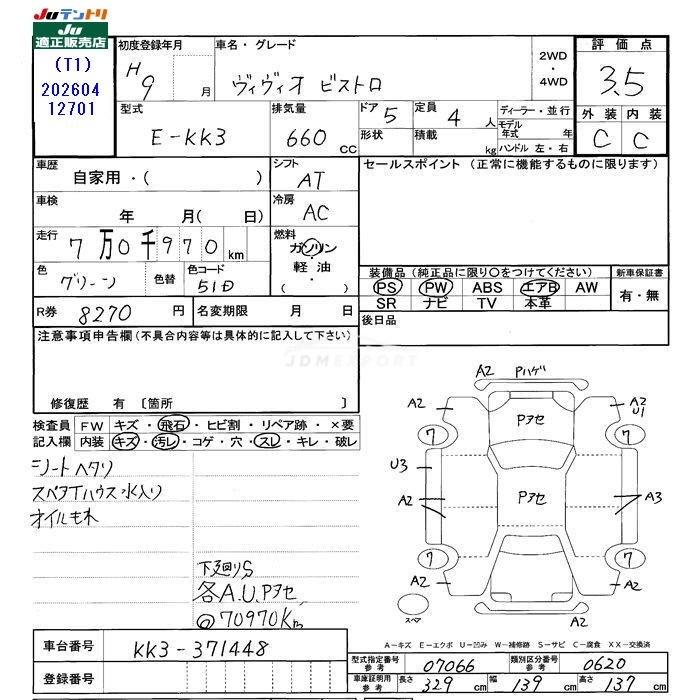 JUテントリ
JU
適正販売店
(T1)
202604
12701
初度登録年月
H9 月
車名・グレード
ヴィヴィオ ビストロ
2WD
・
4WD
評価点
3.5
外装 内装
C C
型式
E-KK3
排気量
660 cc
ドア 5
形状
定員 4 人
積載 kg
ディーラー・並行
モデル年式 年
ハンドル 左・右
車歴
自家用・( )
シフト
AT
セールスポイント (正常に機能するものに限ります)
車検
年 月( 日)
冷房
AC
走行
7万0千970 km
燃料
ガソリン
軽油
・( )
色
グリーン
色替
色コード
51D
装備品 (純正品に限り○をつけてください)
PS PW ABS エアB AW
SR ナビ TV 本革
新車保証書
有・無
R券 8270 円
名変期限 月 日
後日品
注意事項申告欄 (不具合内容等は具体的に記入して下さい)
JDMEXPORT
修復歴 有 〔箇所 〕
検査員記入欄
FW キズ・飛石・ヒビ割・リペア跡・×要
内装 キズ・汚レ・コゲ・穴・スレ・キレ・破レ
シートヘタリ
スペアTハウス水入り
オイルモレ
下廻りS
各A.U.Pアセ
@70970Km
A2 Pハゲ
A2
A2
U1
Pアセ
7
7
U3
A2
Pアセ
A3
7
7
A2
A2
A2
スペア
A-キズ E-エクボ U-凹み W-補修跡 S-サビ C-腐食 XX-交換済
車台番号 KK3-371448
登録番号
型式指定番号 参考 07066
類別区分番号 参考 0620
車庫証明用 参考 長さ 329 cm 幅 139 cm 高さ 137 cm